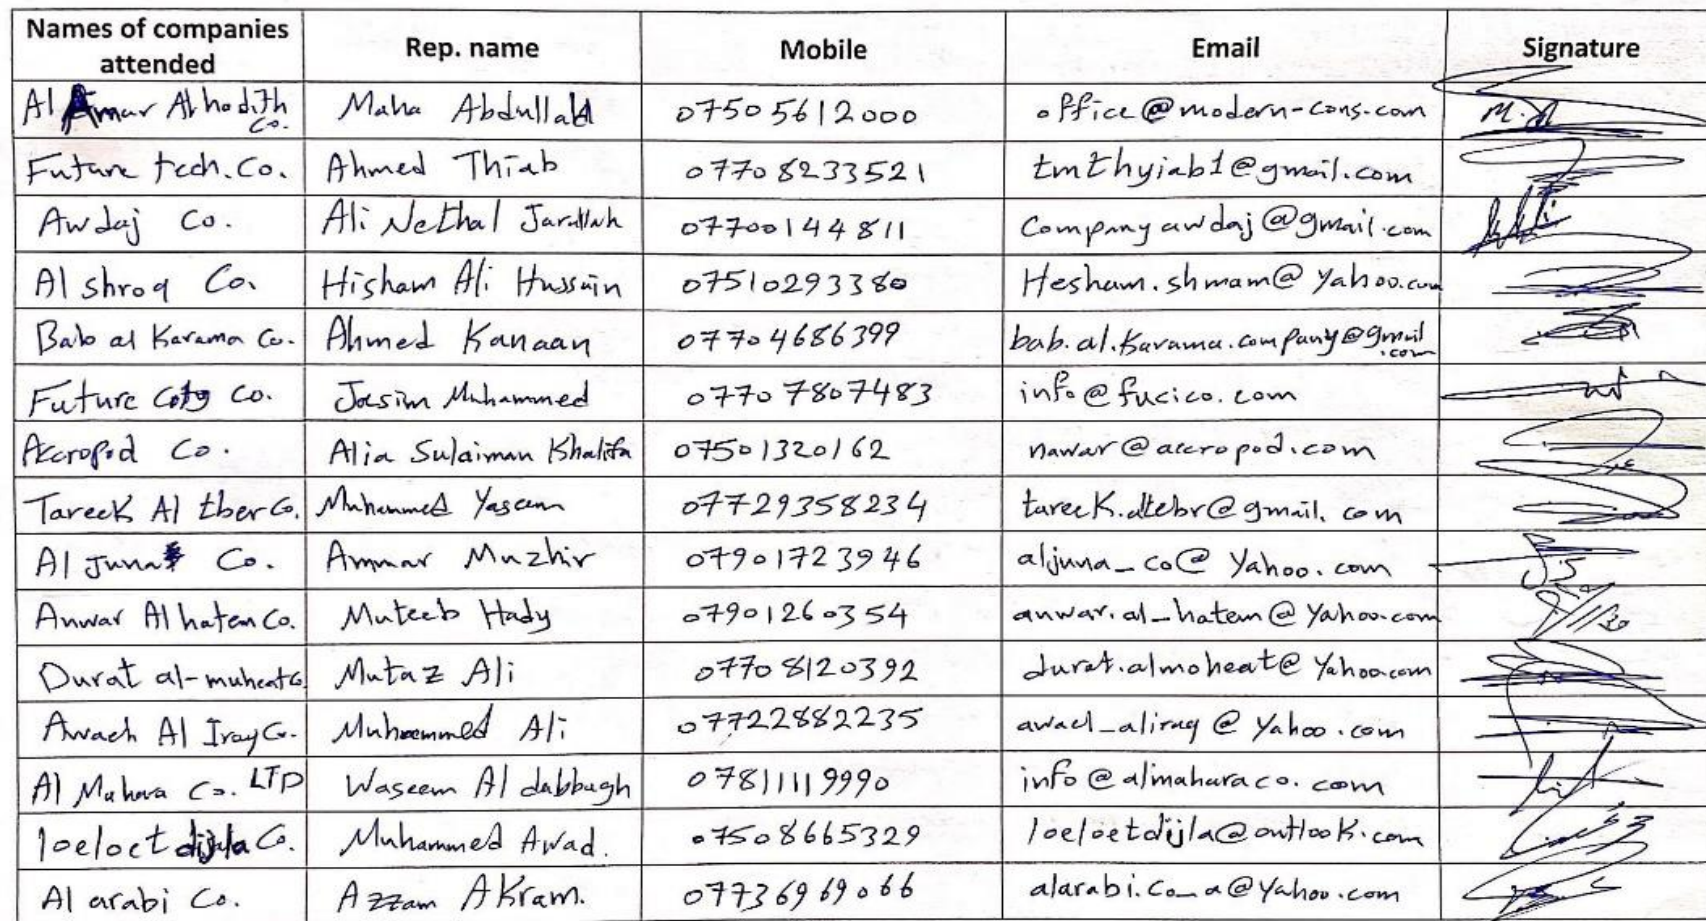 Names of companies attended Rep. name Mobile Email Signature
Al Amar Alhodith Co. Maha Abdullah 07505612000 office@modern-cons.com M.A
Future tech. Co. Ahmed Thiab 07708233521 tmthyiab1@gmail.com
Awdaj Co. Ali Nethal Jarallah 07700144811 Companyawdaj@gmail.com
Al shroq Co. Hisham Ali Hussain 07510293380 Hesham.shmam@Yahoo.com
Bab al Karama Co. Ahmed Kanaan 07704686399 bab.al.Karama.company@gmail.com
Future City Co. Jasim Muhammed 07707807483 info@fucico.com
Accropod Co. Alia Sulaiman Khalifa 07501320162 nawar@accropod.com
Tareek Al tber Co. Muhammed Yaseen 07729358234 tareeK.altebr@gmail.com
Al Juna Co. Ammar Muzhir 07901723946 aljuna_co@Yahoo.com
Anwar Al hatem Co. Muteeb Hady 07901260354 anwar.al_hatem@Yahoo.com
Durat al-muheat Co. Mutaz Ali 07708120392 durat.almoheat@Yahoo.com
Awach Al Iraq Co. Muhammed Ali 07722882235 awael_aliraq@Yahoo.com
Al Mahara Co. LTD Waseem Al dabbagh 07811119990 info@almaharaco.com
loeloet dijla Co. Muhammed Awad. 07508665329 loeloetdijla@outlook.com
Al arabi Co. Azzam AKram. 07736969066 alarabi.co_a@Yahoo.com